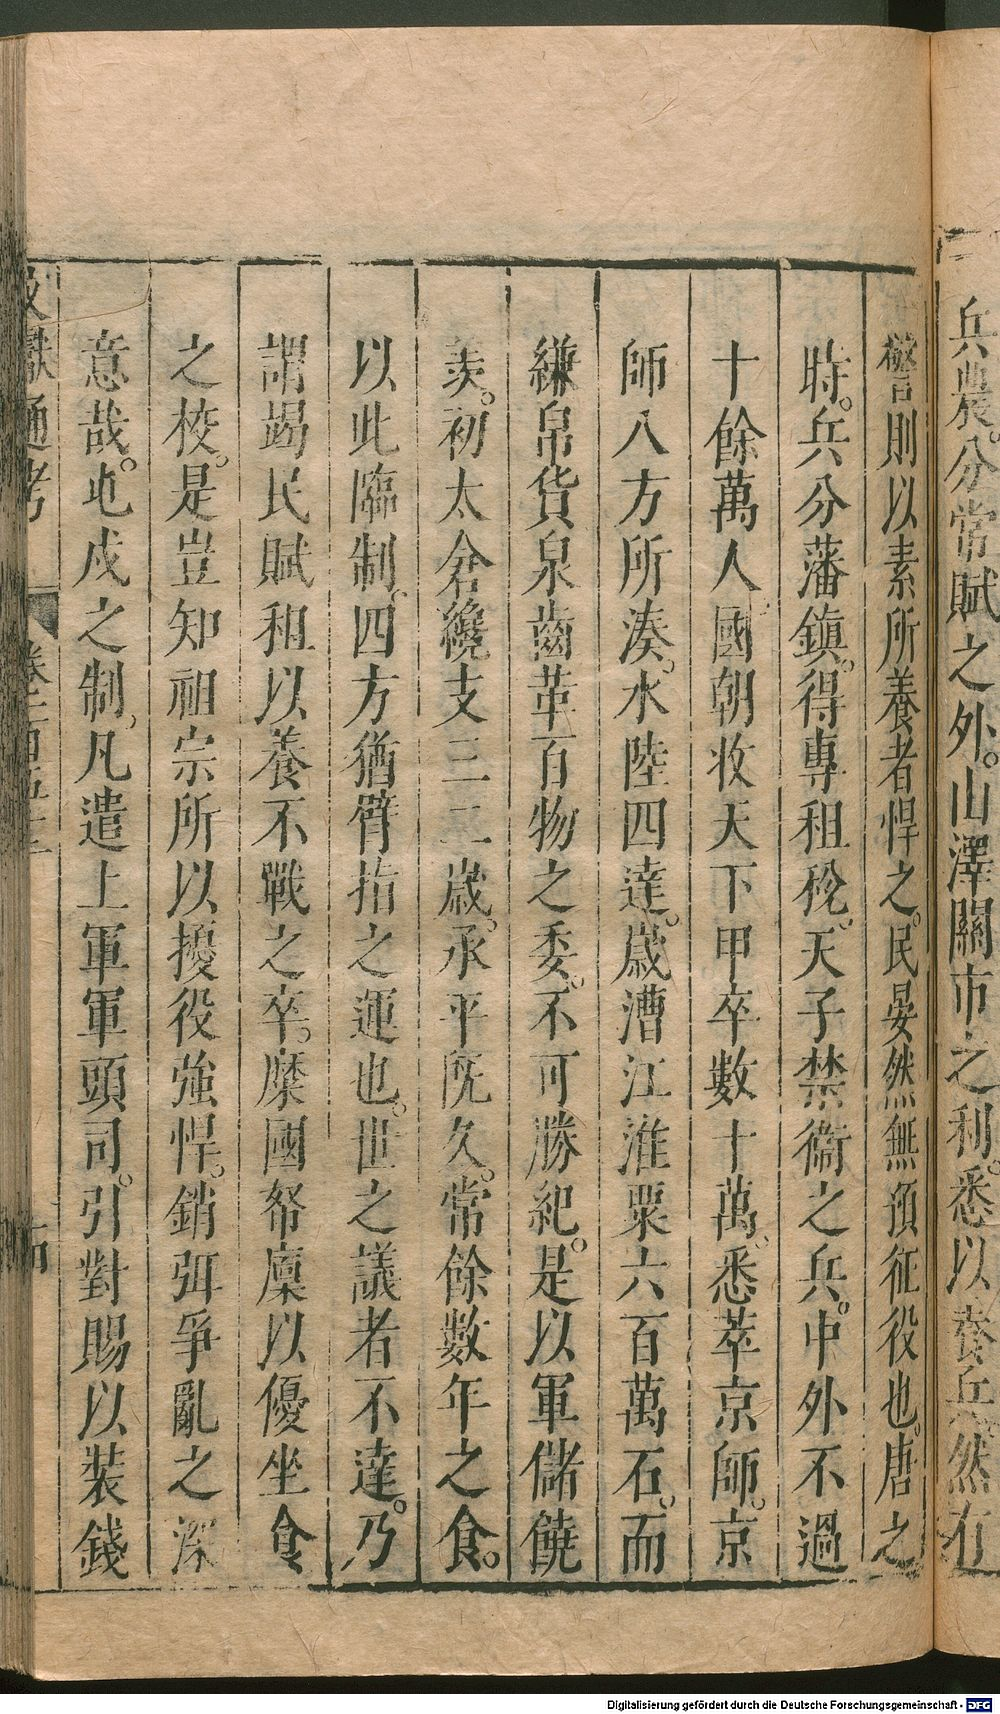 兵農分常賦之外。山澤關市之利。悉以養兵。然有
警則以素所養者悍之。民晏然無預征役也。唐之
時。兵分藩鎮。得專租稅。天子禁衞之兵。中外不過
十餘萬人國朝收天下甲卒數十萬。悉萃京師。京
師八方所湊。水陸四達。歲漕江淮粟六百萬石。而
縑帛貨泉齒革百物之委。不可勝紀。是以軍儲饒
羨。初太倉纔支三二歲。承平旣久。常餘數年之食。
以此臨制四方猶臂指之運也。世之議者不達。乃
謂竭民賦租以養不戰之卒。糜國帑廩以優坐食
之校。是豈知祖宗所以擾役強悍。銷弭爭亂之深
意哉。屯戍之制。凡遣上軍軍頭司。引對賜以裝錢
文獻通考 卷一百五十二 十四
Digitalisierung gefördert durch die Deutsche Forschungsgemeinschaft - DFG